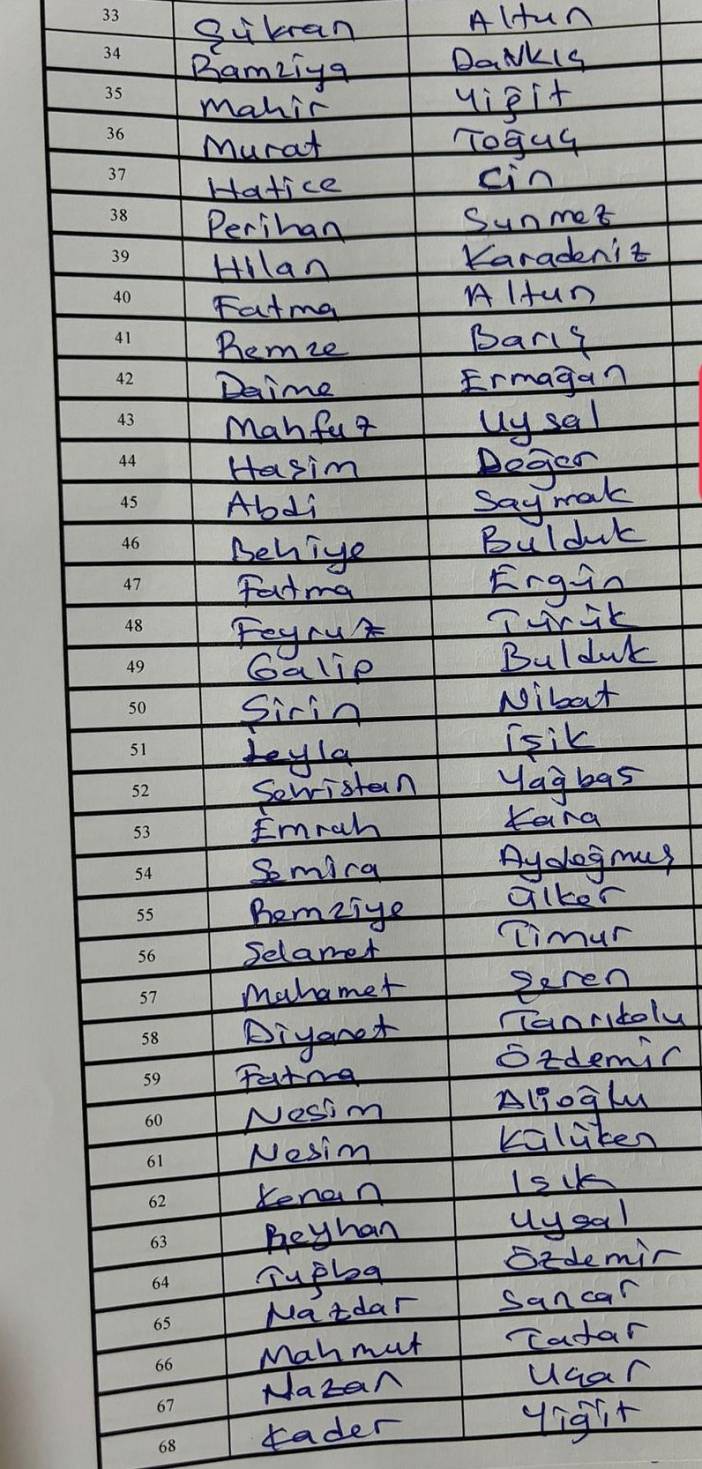 33 Şükran Altun
34 Ramziya Daṅkış
35 Mahir Yiğit
36 Murat Toğuç
37 Hatice Cin
38 Perihan Sunmez
39 Hilan Karadeniz
40 Fatma Altun
41 Remze Barış
42 Daime Ermağan
43 Mahfuz Uysal
44 Haşim Değer
45 Abdi Saymak
46 Behiye Bulduk
47 Fatma Ergün
48 Feyruz Türük
49 Galip Bulduk
50 Şirin Nibat
51 Leyla işik
52 Şehristan Yağbaş
53 Emrah Kara
54 Semira Aydoğmuş
55 Remziye ülker
56 Selamet Timur
57 Muhamet Şeren
58 Diyanet Tanrıkolu
59 Fatma Özdemir
60 Nesim Alioğlu
61 Nesim Külüken
62 Kenan Işık
63 Reyhan Uysal
64 Tuğba Özdemir
65 Nazdar Sancar
66 Mahmut Tatar
67 Nazan Uçar
68 Kader Yiğit